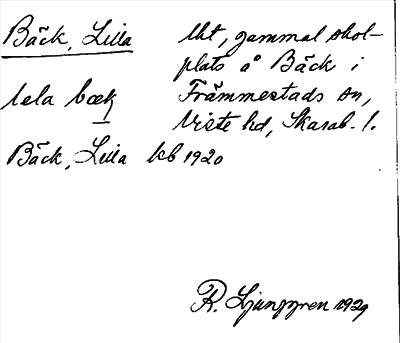 Bäck, Lilla
lht, gammal skol-
plats å Bäck i
Främmestads sn,
Viste hd, Skarab. l.
lela bæk
Bäck, Lilla kb 1920
R. Ljunggren 1929